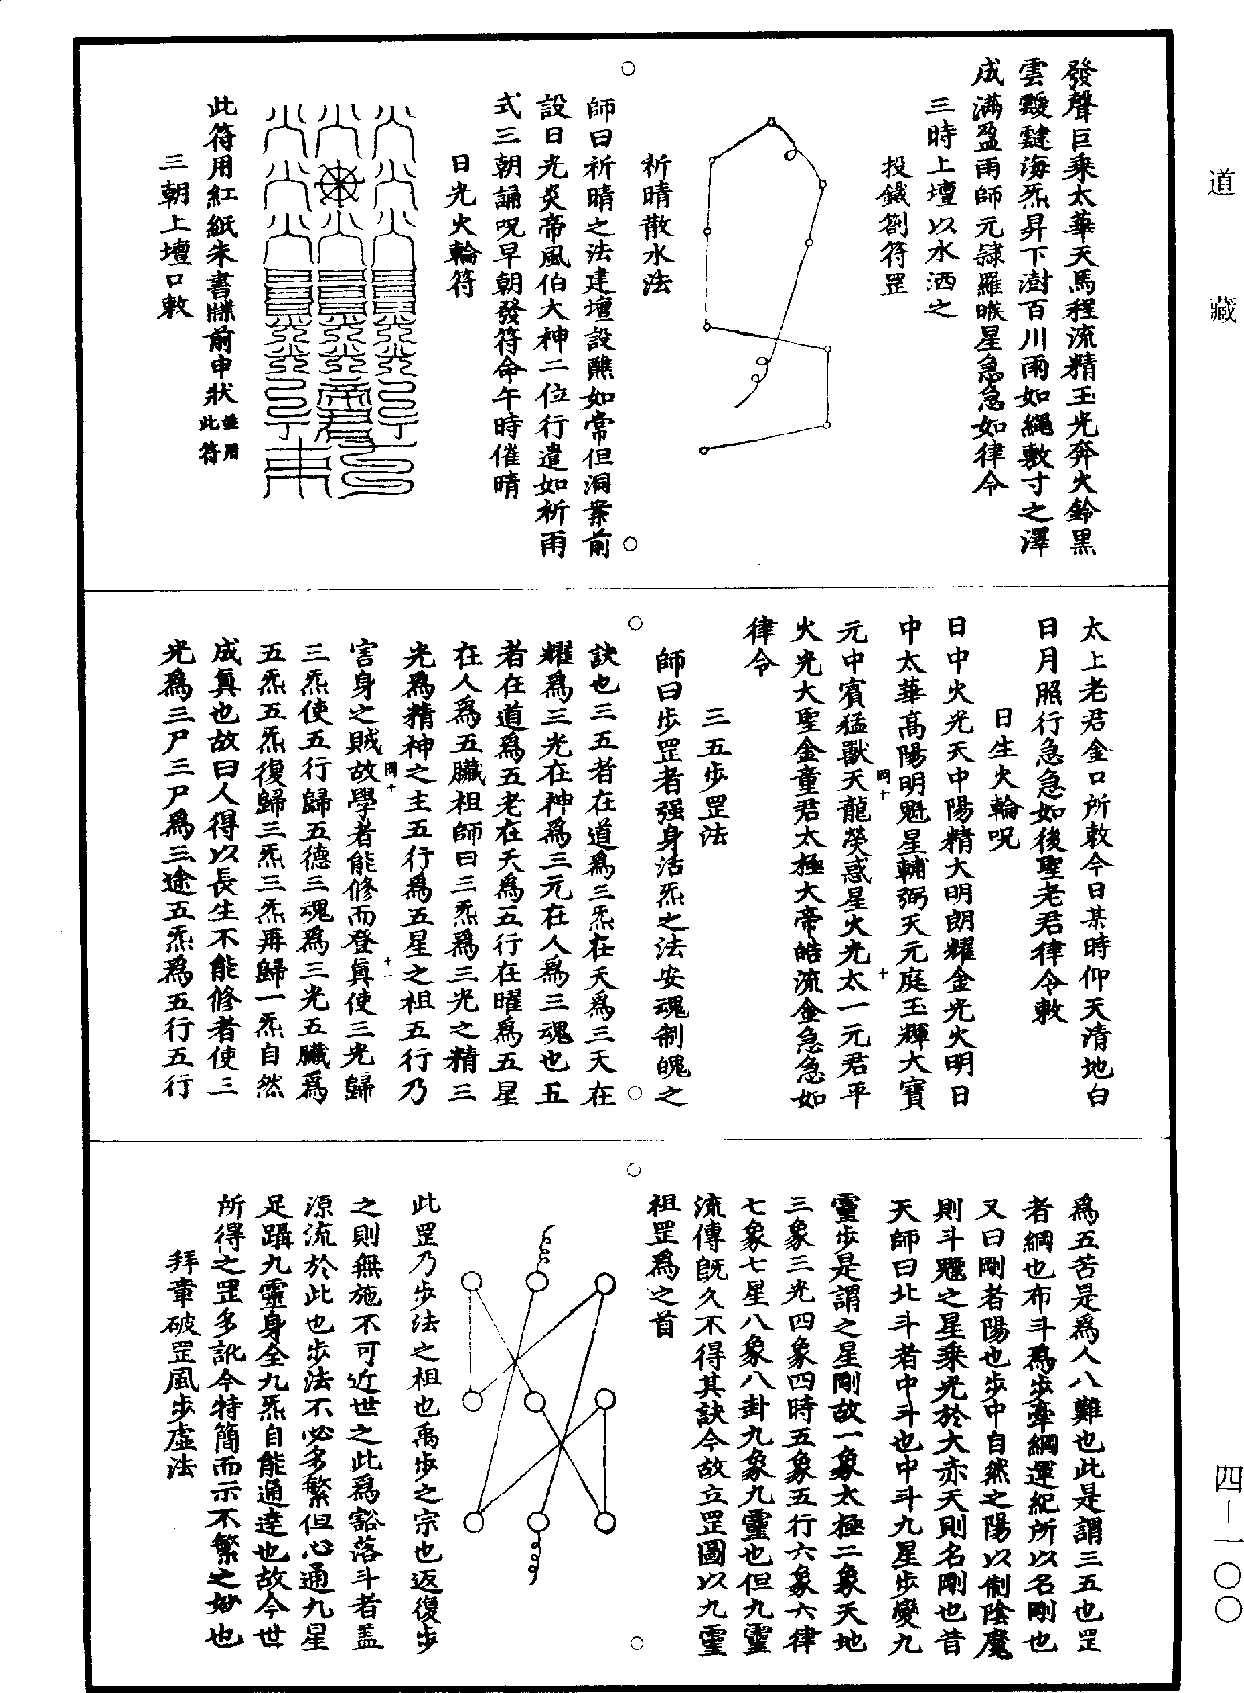 道藏
發聲巨乘太華天馬程流精玉光奔火鈴黑
雲靉靆海炁昇下澍百川雨如繩敷寸之澤
成滿盈雨師元隸羅睺星急急如律令
三時上壇以水洒之
投鐵劄符罡
祈晴散水法
師曰祈晴之法建壇設醮如常但洞案前
設日光炎帝風伯大神二位行遣如祈雨
式三朝誦呪早朝發符命午時催晴
日光火輪符
此符用紅紙朱書牒前申狀並用此符
三朝上壇口敕
太上老君金口所敕今日某時仰天清地白
日月照行急急如後聖老君律令敕
日生火輪呪
日中火光天中陽精大明朗耀金光火明日
中太華高陽明魁星輔弼天元庭玉輝大寶
元中賓猛獸天龍熒惑星火光太一元君平
火光大聖金童君太極大帝皓流金急急如
律令
三五步罡法
師曰步罡者强身活炁之法安魂制魄之
訣也三五者在道爲三炁在天爲三天在
耀爲三光在神爲三元在人爲三魂也五
者在道爲五老在天爲五行在曜爲五星
在人爲五臟祖師曰三炁爲三光之精三
光爲精神之主五行爲五星之祖五行乃
害身之賊故學者能修而登真使三光歸
三炁使五行歸五德三魂爲三光五臟爲
五炁五炁復歸三炁三炁再歸一炁自然
成真也故曰人得以長生不能修者使三
光爲三尸三尸爲三途五炁爲五行五行
爲五苦是爲人八難也此是謂三五也罡
者綱也布斗爲步牽綱運紀所以名剛也
又曰剛者陽也步中自然之陽以制陰魔
則斗魁之星乘光於大亦天則名剛也昔
天師曰北斗者中斗也中斗九星步變九
靈步是謂之星剛故一象太極二象天地
三象三光四象四時五象五行六象六律
七象七星八象八卦九象九靈也但九靈
流傳既久不得其訣今故立罡圖以九靈
祖罡爲之首
此罡乃步法之祖也禹步之宗也返復步
之則無施不可近世之此爲豁落斗者蓋
源流於此也步法不必多繁但心通九星
足躡九靈身全九炁自能通達也故今世
所得之罡多訛今特簡而示不繁之妙也
拜章破罡風步虛法
四－一〇〇